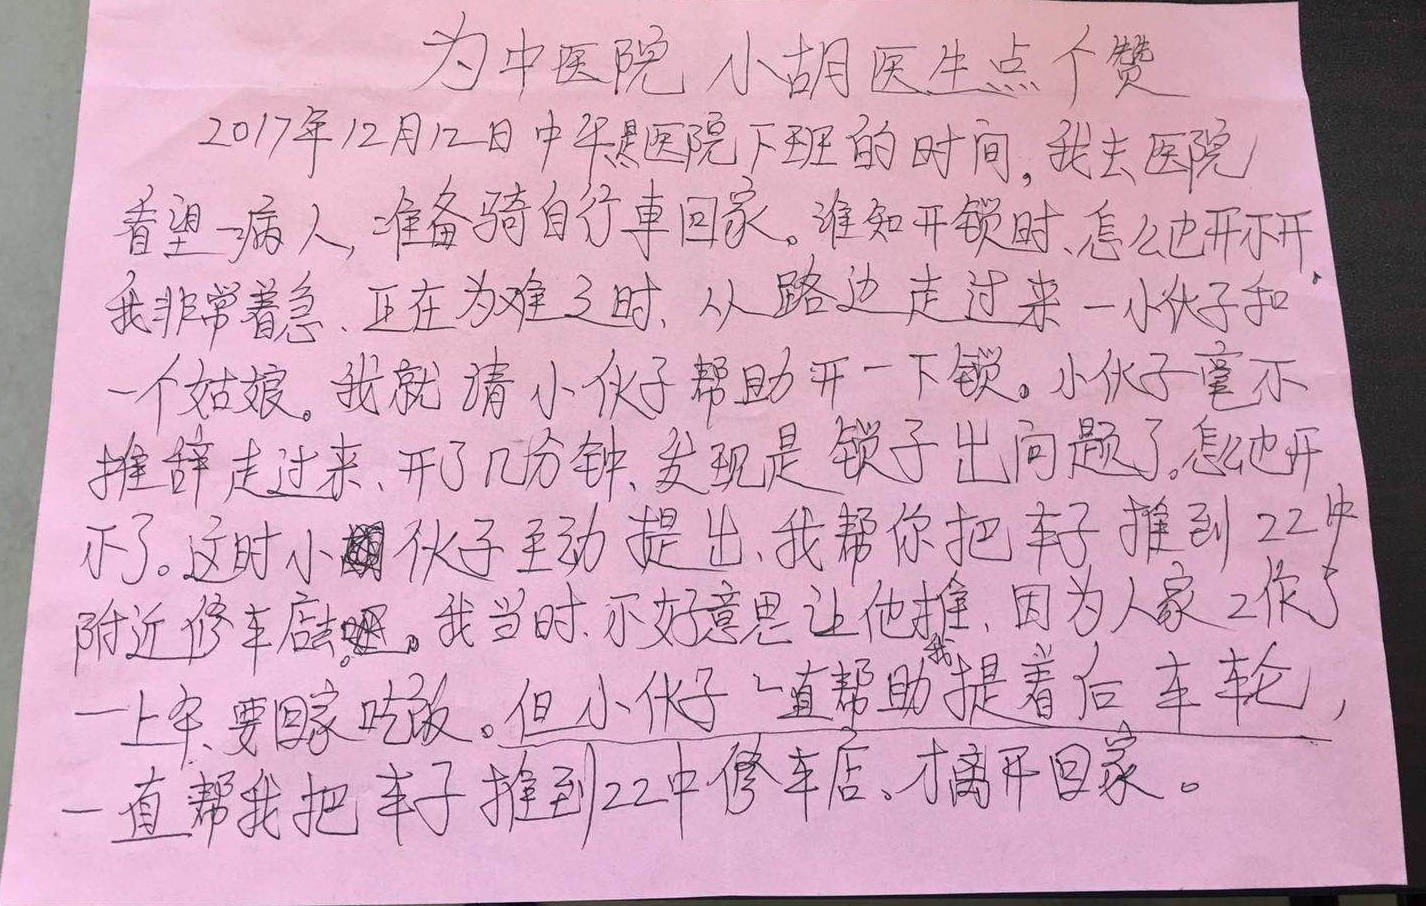 为中医院 小胡医生点个赞
2017年12月12日中午是医院下班的时间,我去医院
看望一病人,准备骑自行車回家。谁知开锁时、怎么也开不开,
我非常着急、正在为难之时、从路边走过来一小伙子和
一个姑娘。我就请小伙子帮助开一下锁。小伙子毫不
推辞走过来、开了几分钟、发现是锁子出问题了。怎么也开
不了。这时小伙子主动提出、我帮你把车子推到22中
附近修车店去吧。我当时、不好意思让他推、因为人家工作了
一上午、要回家吃饭。但小伙子一直帮助我提着后车轮,
一直帮我把车子推到22中修车店、才离开回家。